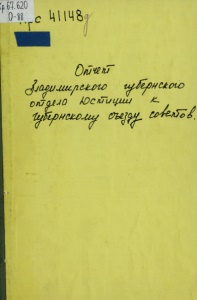 67.620
О-88
41148
Отчет
Владимирского губернского
отдела Юстиции к
губернскому съезду советов.